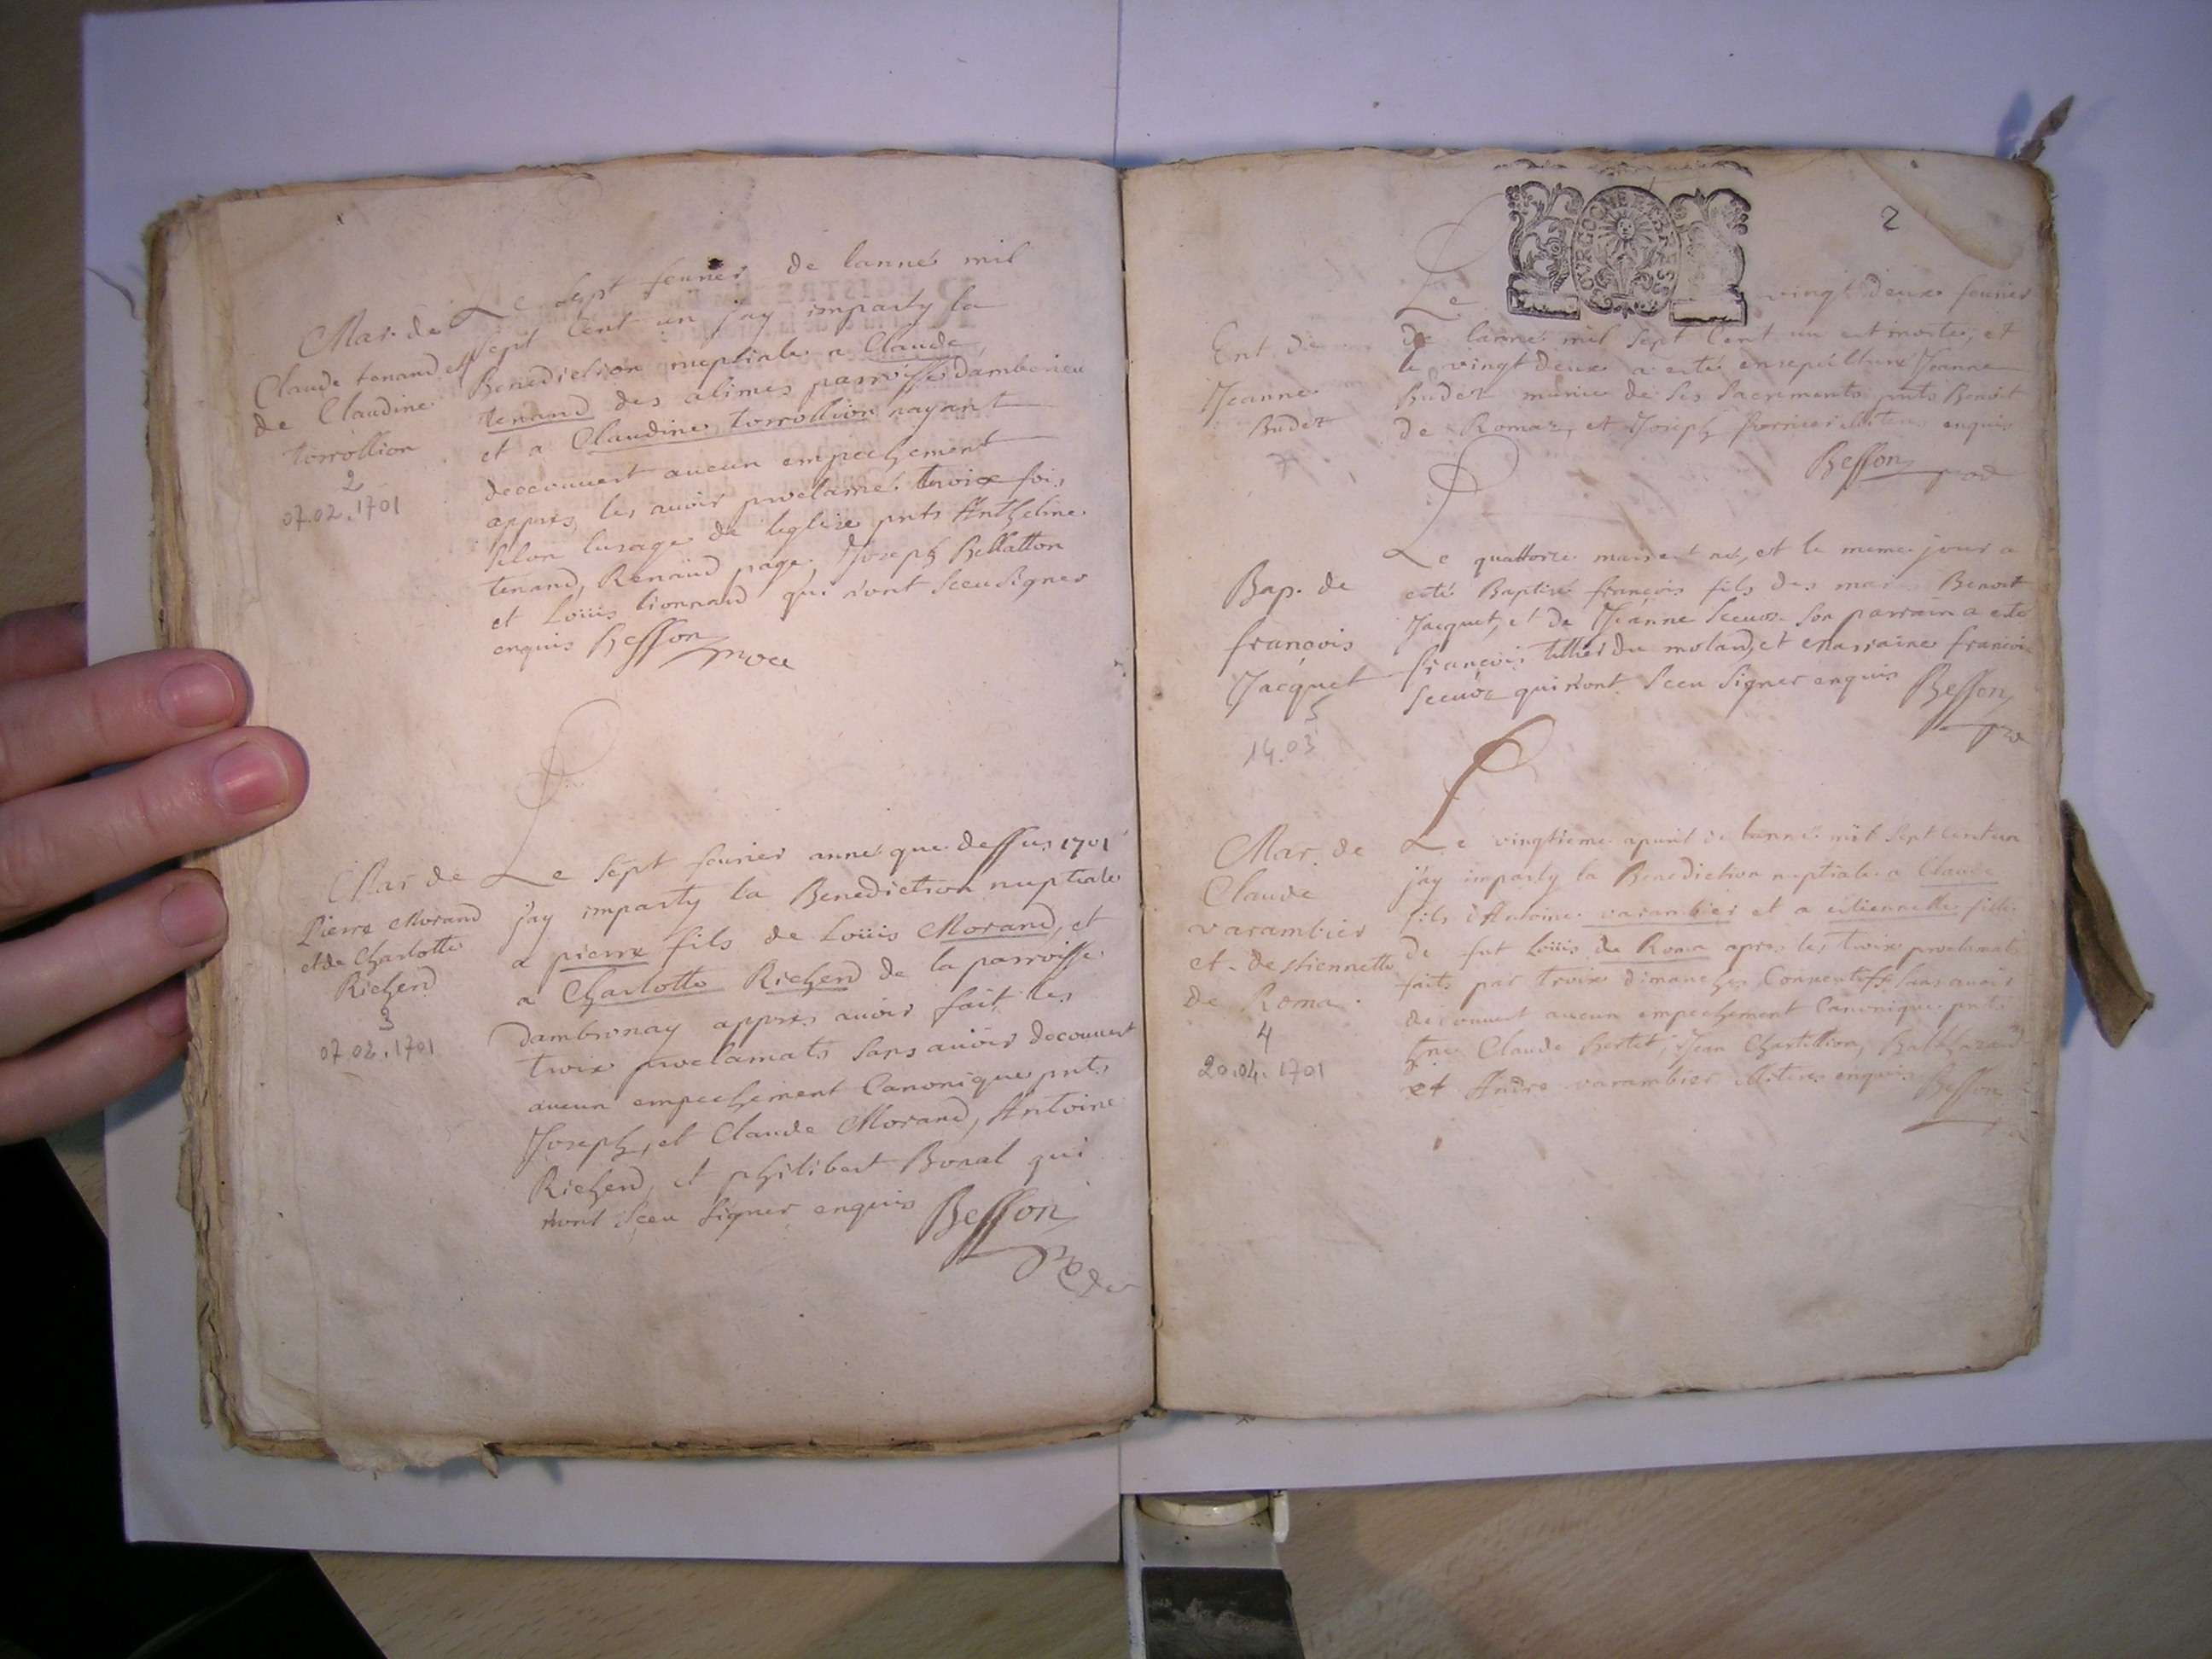 Mar. de
Claude tenand et
de Claudine
torrollion
2
07.02.1701
Le sept feurier de lanneé mil
sept Cent un jay imparty la
Benediction nuptiale a Claude
tenand des alimes parroisse damberieu
et a Claudine torrollion nayant
decouuert aucun empechement
appres les auoir proclamé troix fois
selon lusage de leglise pnts Anthelme
tenand, Renaud page, Joseph Bellatton
et Loüis lionnard qui n'ont sceu signer
enquis Besson
Mar de
Pierre Morand
et de Charlotte
Richerd
3
07.02.1701
Le sept feurier anneé que dessus 1701
j'ay imparty la Benediction nuptiale
a pierre fils de Loüis Morand, et
a Charlotte Richerd de la parroisse
dambronay appres auoir fait les
troix proclamats sans auoir decouuert
aucun empechement Canonique pnts
Joseph, et Claude Morand, Antoine
Richerd, et philibert Bonal qui
n'ont sceu signer enquis Besson
2
BOURGOGNE BRESSE
Ent. de
Jeanne
Budet
Le vingt deux feurier
de lanneé mil sept Cent un est morte, et
le vingt deux a esté ensepulturé Jeanne
Budet munie de ses sacrements pnts Benoit
de Romaz, et Joseph fornier enquis
Besson
Bap. de
françois
Jacquet
5
14.03
Le quattorze mars est né, et le meme jour a
esté Baptisé françois fils des mar. Benoit
Jacquet, et de Jeanne Scuoz son parrain a esté
françois tillier du moland, et marraine francoi
Scuoz qui n'ont sceu signer enquis Besson
Mar. de
Claude
varambier
et destiennette
de Roma.
4
20.04.1701
Le vingtieme apuril de lanneé mil sept Cent un
j'ay imparty la Benediction nuptiale a Claude
fils d'Antoine varambier et a estiennette fille
de fut Loüis de Roma apres les troix proclamats
faits par troix dimanches Consentifs sans auoir
decouuert aucun empechement Canonique pnts
Claude Bertet, Jean Chastillion, Balthazard
et André varambier enquis Besson